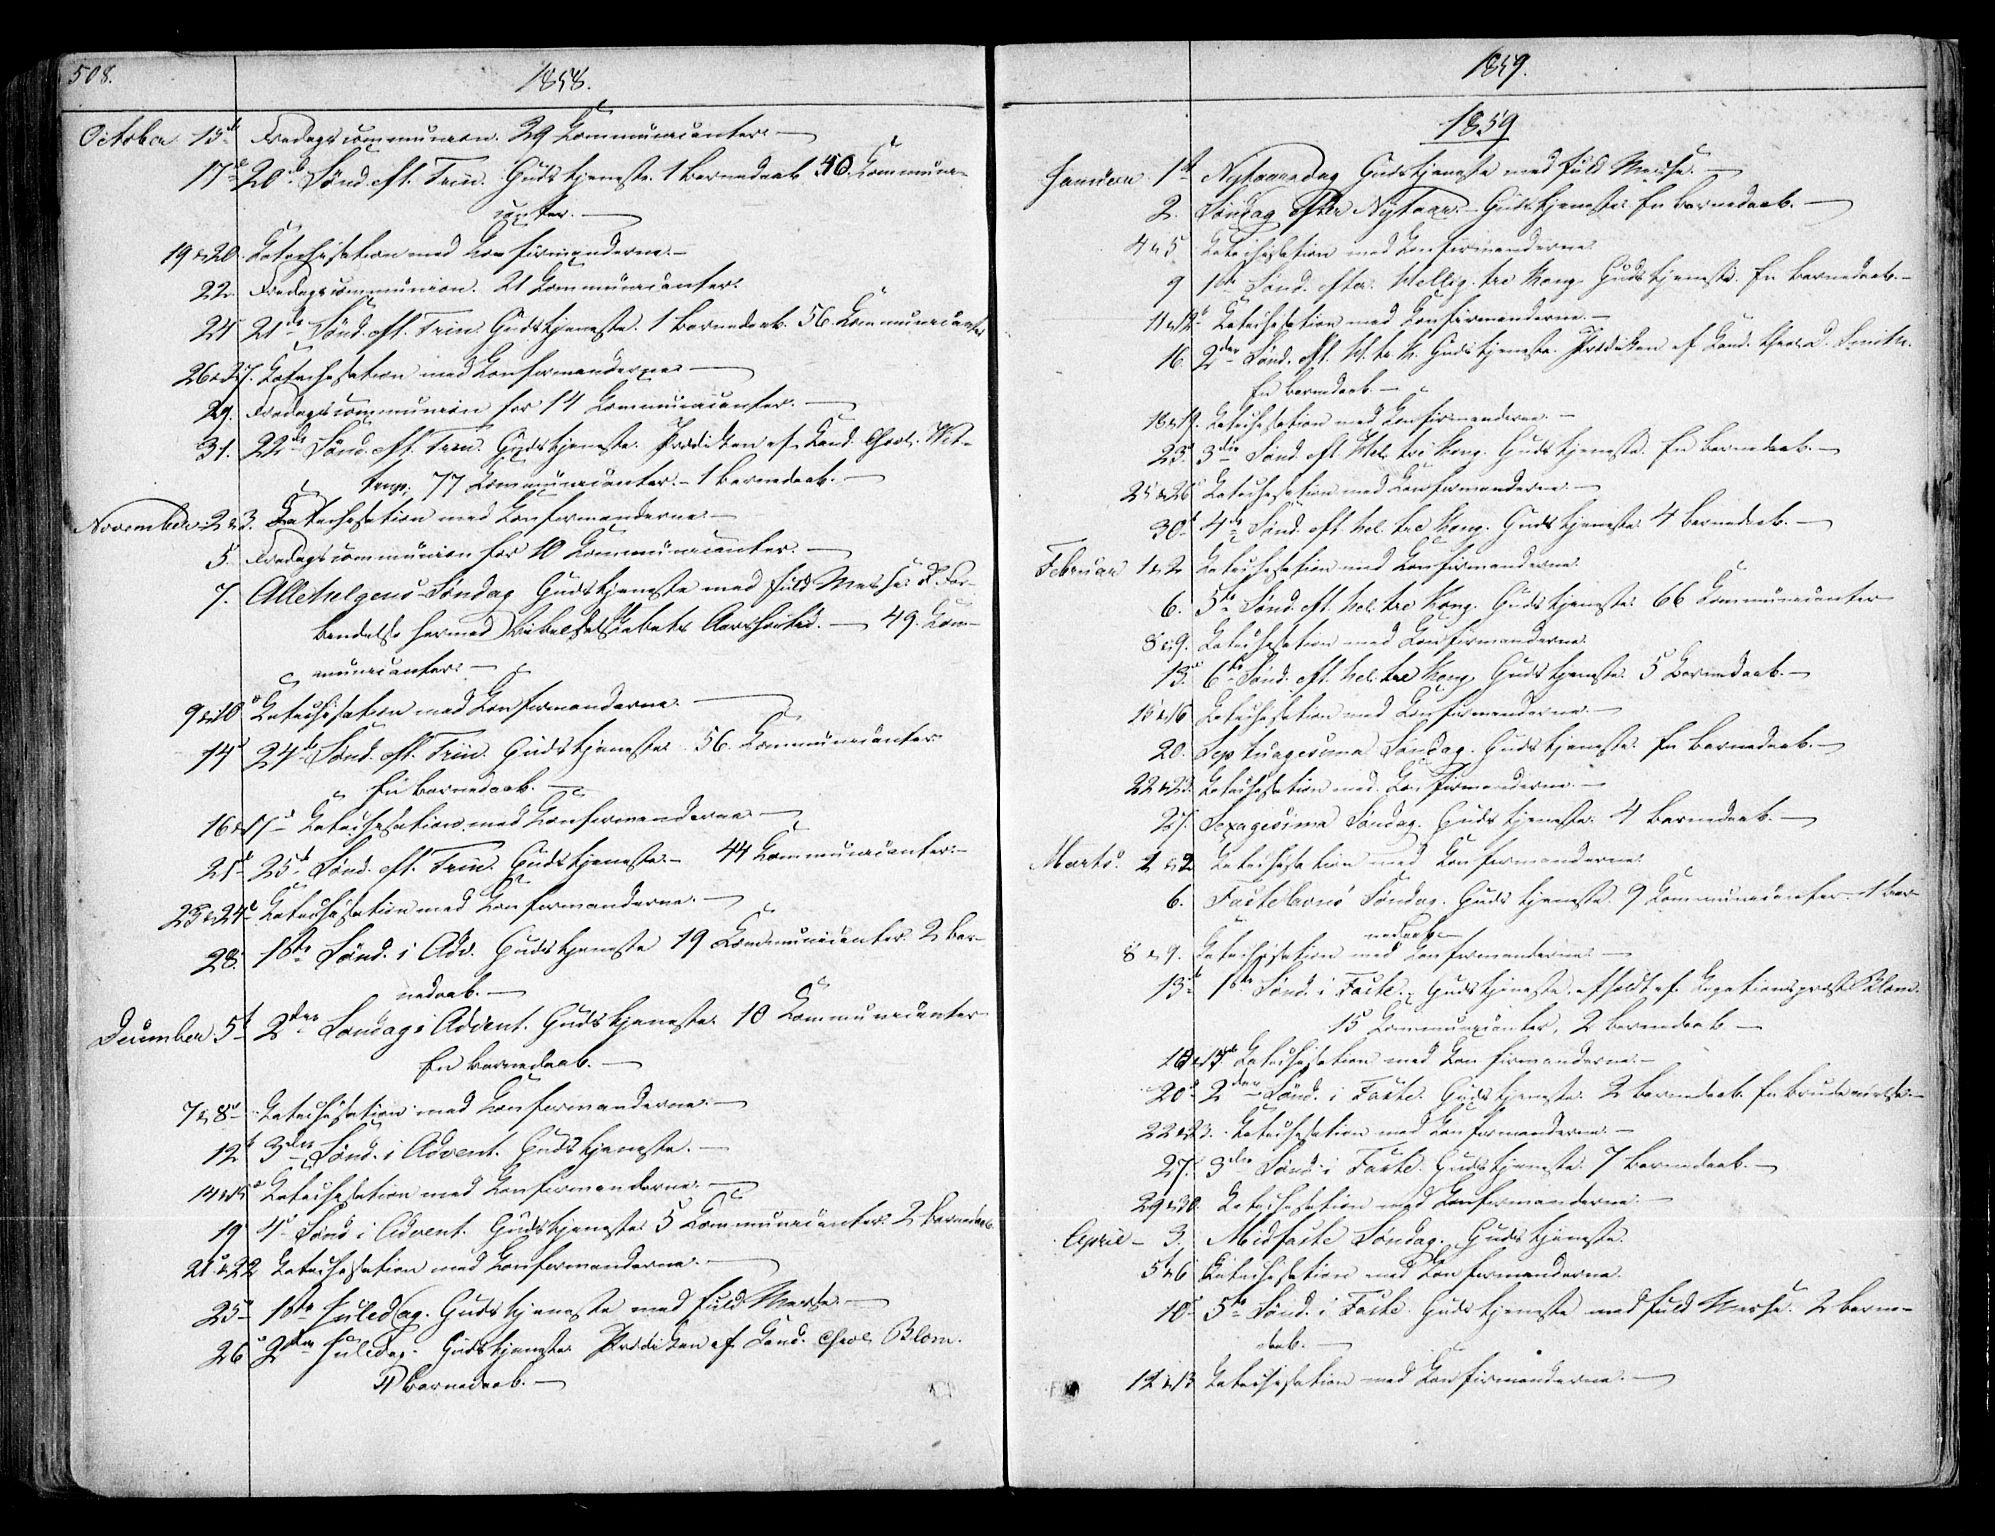 508.
1858.
October 15de Fredagscommunion. 29 Communicanter. —
17de 20de Sønd. eft. Trin. Gudstjeneste. 1 Barnedaab 40 Communi-
canter. —
19 & 20. Catechisation med Konfirmanderne. —
22. Fredagscommunion. 21 Communicanter.
24 21de Sønd. eft. Trin. Gudstjeneste. 1 Barnedaab. 56 Communicanter
26 & 27. Catechisation med Confirmanderne. —
29. Fredagscommunion for 14 Communicanter. —
31. 22de Sønd. eft. Trin. Gudstjeneste. Prædiken af Cand. theol. Wit-
trup. 77 Communicanter. — 1 Barnedaab. —
November 2 & 3. Catechisation med Confirmanderne. —
5. Fredagscommunion for 10 Communicanter. —
7. Allehelgens Søndag Gudstjeneste med fuld Messe. I For-
bindelse hermed Bibelselskabets Aarsfest. — 49 Com-
municanter. —
9 & 10 Catechisation med Confirmanderne. —
14 24de Sønd. eft. Trin. Gudstjeneste. 56 Communicanter
En Barnedaab. —
16 & 17 Catechisation med Confirmanderne —
21de 25de Sønd. eft. Trin. Gudstjeneste. — 44 Communicanter. —
23 & 24de Catechisation med Confirmanderne. —
28. 1ste Sønd. i Adv. Gudstjeneste 19 Communicanter. 2 Bar-
nedaab. —
December 5t 2den Søndag i Advent. Gudstjeneste 10 Communicanter
En Barnedaab. —
7 & 8 Catechisation med Confirmanderne. —
12t 3die Sønd. i Advent. Gudstjeneste. —
14 & 15 Catechisation med Confirmanderne. —
19 4de Sønd i Advent. Gudstjeneste 5 Communicanter. 2 Barnedaab.
21 & 22 Catechisation med Confirmanderne. —
25 1ste Juledag. Gudstjeneste med fuld Messe. —
26 2den Juledag. Gudstjeneste Prædiken af Cand. theol. Blom.
4 Barnedaab. —
1859.
1859
Januar 1st Nytaarsdag Gudstjeneste med fuld Messe. —
2. Søndag efter Nytaar. — Gudstjeneste. En Barnedaab. —
4 & 5 Catechisation med Confirmanderne.
9 1ste Sønd. efter Hellig. tre Kong. Gudstjeneste. En Barnedaab. —
11 & 12 Catechisation med Confirmanderne. —
16. 2den Sønd. eft. H. tr. K. Gudstjeneste. Prædiken af Cand. theol. Smith.
En Barnedaab —
18 & 19. Catechisation med Confirmanderne. —
23. 3die Sønd. eft Hel. tre Kong. Gudstjeneste. En Barnedaab. —
25 & 26 Catechisation med Confirmanderne. —
30 4de Sønd. eft. hel. tre Kong. Gudstjeneste 4 Barnedaab. —
Februar 1 & 2 Catechisation med Confirmanderne.
6. 5te Sønd. eft. hel. tre Kong. Gudstjeneste. 66 Communicanter
8 & 9. Catechisation med Confirmanderne.
13. 6te Sønd. eft. hel. tre Kong. Gudstjeneste 5 Barnedaab. —
15 & 16 Catechisation med Confirmanderne. —
20. Septuagesima Søndag. Gudstjeneste. En Barnedaab. —
22 & 23. Catechisation med Confirmanderne. —
27. Sexagesima Søndag. Gudstjeneste. 4 Barnedaab. —
Marts. 1 & 2 Catechisation med Confirmanderne.
6. Fastelavns Søndag. Gudstjeneste 9 Communicanter. 1 Bar-
nedaab. —
8 & 9. Catechisation med Confirmanderne. —
13. 1ste Sønd. i Faste. Gudstjeneste afholdt af Legationspræst Blom.
15 Communicanter, 2 Barnedaab —
Catechisation med Confirmanderne. —
20. 2den Sønd. i Faste. Gudstjeneste. 2 Barnedaab. En Brudevielse. —
22 & 23. Catechisation med Confirmanderne. —
27. 3die Sønd. i Faste. Gudstjeneste. 7 Barnedaab. —
29 & 30. Catechisation med Confirmanderne. —
April — 3. Midfaste Søndag. Gudstjeneste.
5 & 6 Catechisation med Confirmanderne.
10. 5te Sønd. i Faste. Gudstjeneste med fuld Messe. 2 Barne-
daab. —
12 & 13 Catechisation med Confirmanderne. —